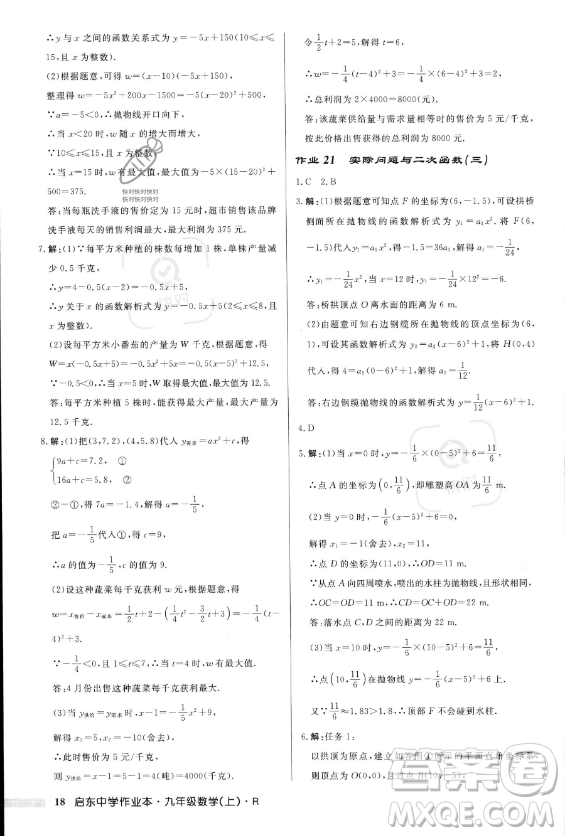 ∴y 与 x 之间的函数关系式为 y=-5x+150(10≤x≤
15,且 x 为整数).
(2)根据题意,得 w=(x-10)(-5x+150),
整理得 w=-5x²+200x-1500.
∵a=-5<0,∴抛物线开口向下,
∴当 x<20 时,w 随 x 的增大而增大.
∵10≤x≤15,且 x 为整数,
∴当 x=15 时,w 有最大值,w最大值=-5(15-20)²+
500=375.
答:当每瓶洗手液的售价定为 15 元时,超市销售该品牌
洗手液每天的销售利润最大,最大利润为 375 元.
7.解:(1)∵每平方米种植的株数每增加 1 株,单株产量减
少 0.5 千克,
∴y 关于 x 的函数解析式为 y=-0.5x+5(2≤x≤8,
且 x 为整数).
(2)设每平方米小番茄的产量为 W 千克.根据题意,得
W=x(-0.5x+5)=-0.5x²+5x=-0.5(x-5)²+12.5.
∵-0.5<0,∴当 x=5 时,W 取得最大值,最大值为 12.5.
答:每平方米种植 5 株时,能获得最大的产量,最大产量为
12.5 千克.
8.解:(1)把(3,7.2),(4,5.8)代入 y需求=ax²+c,得
9a+c=7.2, ①
16a+c=5.8. ②
②-①,得 7a=-1.4,解得 a=-1/5,
把 a=-1/5代入①,得 c=9,
∴a 的值为-1/5,c 的值为 9.
(2)设这种蔬菜每千克获利 w 元.根据题意,得
w=x售价-x成本=1/2t+2-(1/4t²-3/2t+3)=-1/4(t-
4)²+3.
∵-1/4<0,且 1≤t≤7,∴当 t=4 时,w 有最大值.
答:4 月份出售这种蔬菜每千克获利最大.
(3)当 y供给=y需求时,x-1=-1/5x²+9,
解得 x₁=5,x₂=-10(舍去),
∴此时售价为 5 元/千克,
则 y供给=x-1=5-1=4(吨)=4000(千克),
令1/2t+2=5,解得 t=6,
∴w=-1/4(t-4)²+3=-1/4×(6-4)²+3=2,
∴总利润为 2×4000=8000(元).
答:该蔬菜供给量与需求量相等时的售价为 5 元/千克,
按此价格出售获得的总利润为 8000 元.
作业 21 实际问题与二次函数(三)
1.C 2.B
3.解:(1)根据题意可知点 F 的坐标为(6,-1.5),可设拱桥
侧面所在抛物线的函数解析式为 y₁=a₁x²,将 F(6,
-1.5)代入,得-1.5=36a₁,解得 a₁=-1/24,
∴y₁=-1/24x².当 x=12 时,y₁=-1/24×12²=-6.
答:桥拱顶点 O 离水面的高度为 6 m.
(2)由题意可知右边钢缆所在抛物线的顶点坐标为
(6,1),可设其函数解析式为 y₂=a₂(x-6)²+1,将 H(0,4)
代入,得 4=a₂(0-6)²+1,解得 a₂=1/12.
答:右边钢缆抛物线的函数解析式为 y₂=1/12(x-6)²+1.
4.D
5.解:(1)当 x=0 时,y=-1/6×(0-5)²+6=11/6,
∴点 A 的坐标为(0,11/6),即雕塑高11/6 m.
(2)当 y=0 时,-1/6(x-5)²+6=0,
解得 x₁=-1(舍去),x₂=11,
∴点 D 的坐标为(11,0),∴OD=11 m.
∵从点 A 向四周喷水,喷出的水柱为抛物线,
∴OC=OD=11 m,∴CD=OC+OD=22 m.
答:落水点 C,D 之间的距离为 22 m.
(3)当 x=10 时,y=-1/6×(10-5)²+6=11/6,
∴点(10,11/6)在抛物线 y=-1/6(x-5)²+6 上.
又∵11/6≈1.83>1.8,∴顶部 F 不会碰到水柱.
6.解:任务 1:
以拱顶为原点,
18 启东中学作业本·九年级数学(上)·R